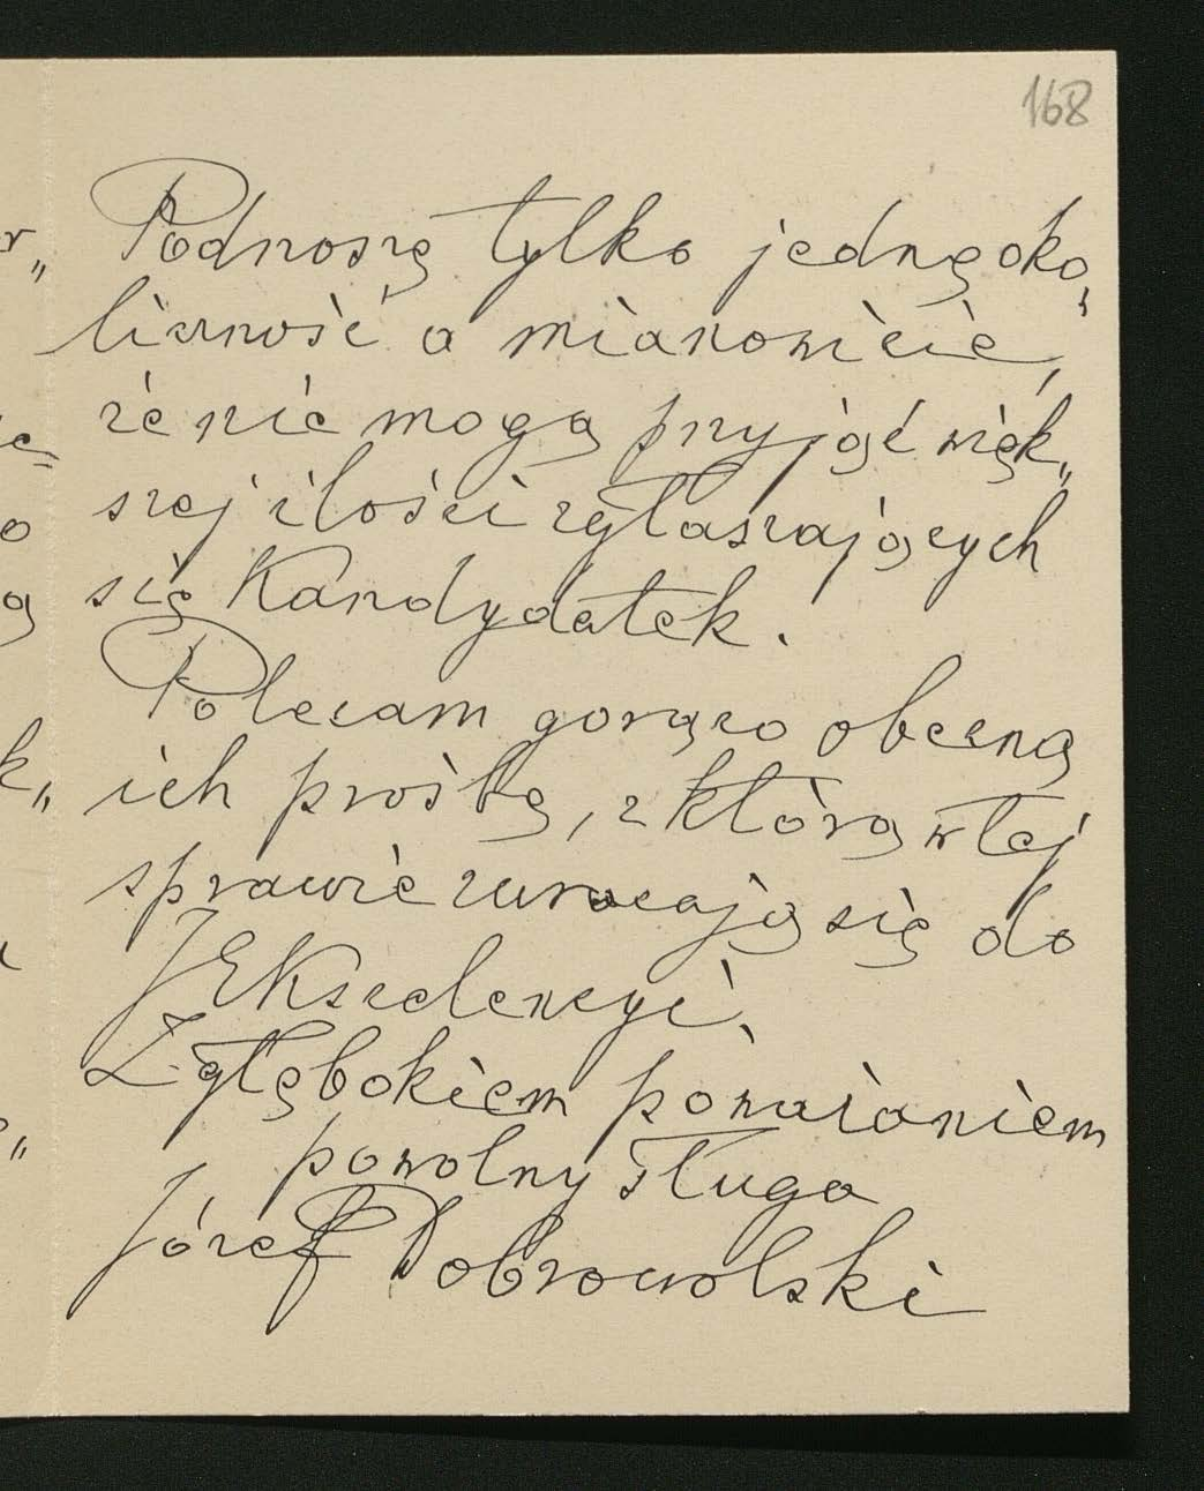 168
Podnoszę tylko jedną oko„
liczność a mianowicie,
że nie mogą przyjąć więk„
szej ilości zgłaszających
się Kandydatek.
Polecam gorąco obecną
ich prośbę, z którą w tej
sprawie zwracają się do
JEkscelencyi.
Z głębokiem poważaniem
powolny sługa
Józef Dobrowolski